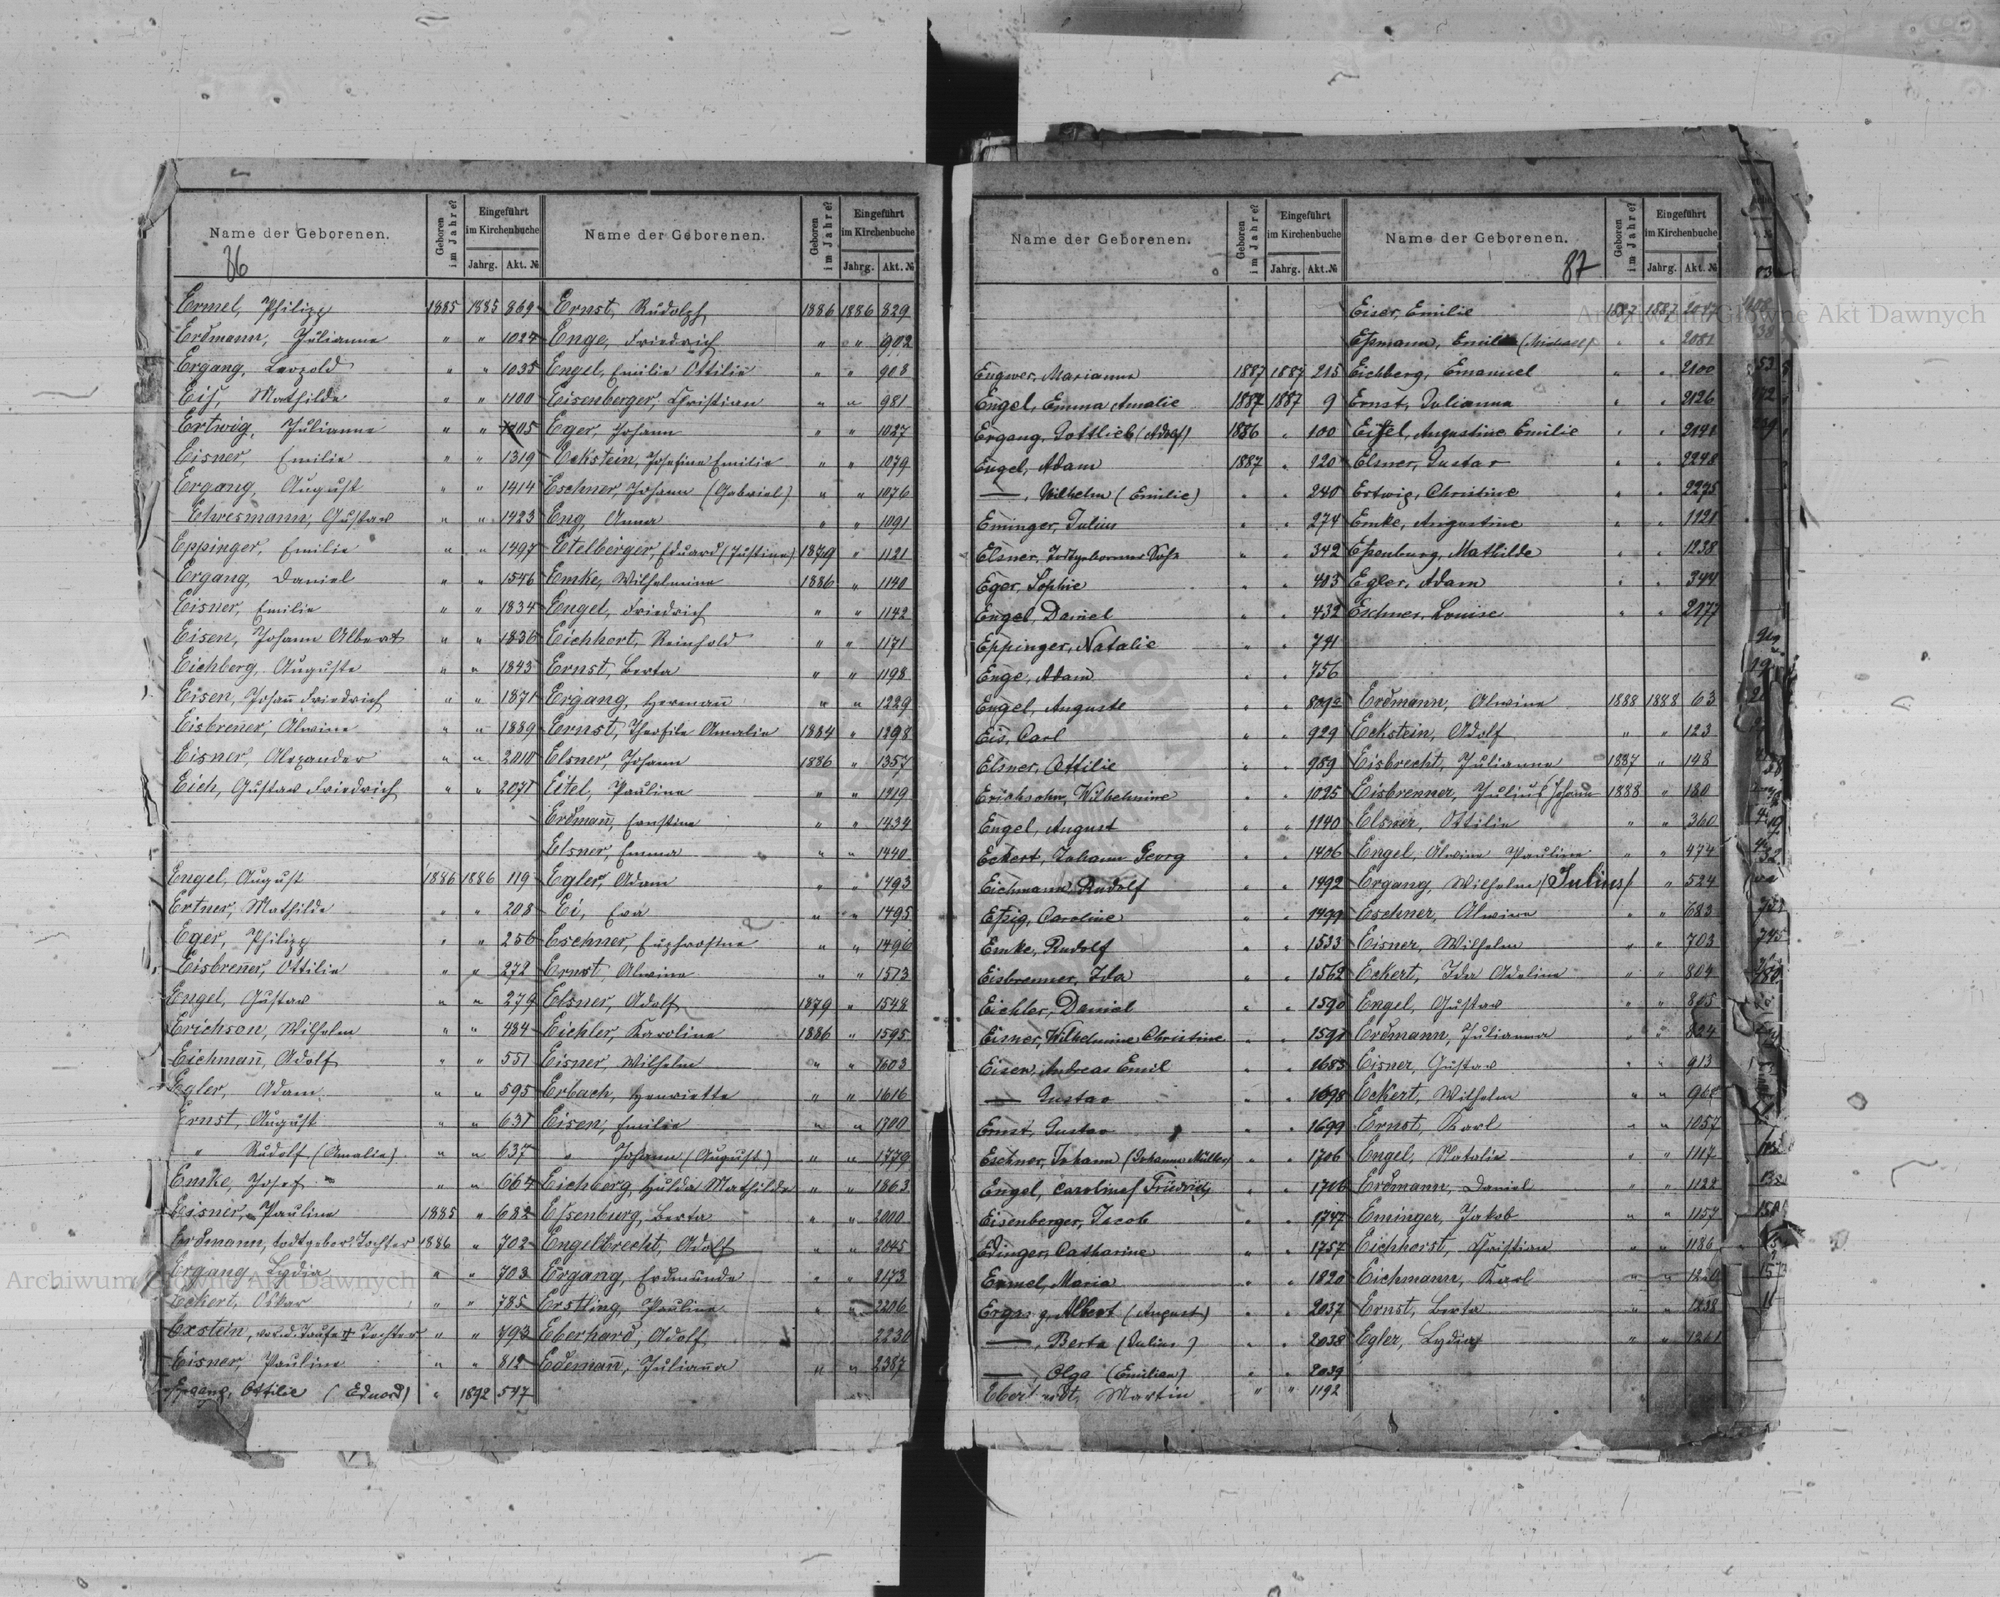 Name der Geborenen.
Geboren im Jahre?
Eingeführt im Kirchenbuche
Jahrg. Akt. №
86
Ermel, Philipp 1885 1885 869
Erdmann, Julianna " " 1024
Ergang, Leopold " " 1035
Eis, Mathilde " " 1100
Ertwig, Julianne " " 1205
Eisner, Emilie " " 1319
Ergang, August " " 1414
Ehresmann, Gustav " " 1423
Eppinger, Emilie " " 1497
Ergang, Daniel " " 1546
Eisner, Emilie " " 1834
Eisen, Johann Albert " " 1836
Eichberg, Auguste " " 1843
Eisen, Johann Friedrich " " 1871
Eisbrener, Alwine " " 1889
Eisner, Alexander " " 2010
Eich, Gustav Friedrich " " 2071
Engel, August 1886 1886 119
Ertner, Mathilde " " 208
Eger, Philipp " " 256
Eisbrener, Ottilie " " 272
Engel, Gustav " " 279
Erichson, Wilhelm " " 484
Eichmann, Adolf " " 551
Egler, Adam " " 595
Ernst, August " " 631
" Rudolf (Amalie) " " 637
Emke, Josef " " 664
Eisner, Pauline 1885 " 682
Erdmann, todtgebor. Tochter 1886 " 702
Ergang Lydia " " 703
Eckert, Oskar " " 785
Exstein, vor d. Taufe † Tochter " " 793
Eisner, Pauline " " 812
Ergang, Ottilie (Eduard) " 1892 547
Name der Geborenen.
Geboren im Jahre?
Eingeführt im Kirchenbuche
Jahrg. Akt. №
Ernst, Rudolph 1886 1886 829
Enge, Friedrich " " 902
Engel, Emilie Ottilie " " 908
Eisenberger, Christian " " 981
Eger, Johann " " 1027
Eckstein, Josefine Emilie " " 1079
Eschner, Johann (Gabriel) " " 1076
Eng, Anna " " 1091
Etelberger, Eduard (Justine) 1879 " 1121
Emke, Wilhelmine 1886 " 1140
Engel, Friedrich " " 1142
Eichhort, Reinhold " " 1171
Ernst, Berta " " 1198
Ergang, Hermann " " 1229
Ernst, Theofile Amalie 1884 " 1298
Elsner, Johann 1886 " 1357
Eitel, Pauline " " 1419
Erdmann, Ernstine " " 1434
Elsner, Emma " " 1440
Egler, Adam " " 1493
Ei, Eva " " 1495
Eschner, Euphrosine " " 1496
Ernst, Alwine " " 1513
Elsner, Adolf 1879 " 1548
Eichler, Karoline 1886 " 1595
Eisner, Wilhelm " " 1603
Erbach, Henriette " " 1616
Eisen, Emilie " " 1700
" Johann (August) " " 1779
Eichberg, Hulda Mathilde " " 1863
Essenburg, Berta " " 2000
Engelbrecht, Adolf " " 2045
Ergang, Erdmunde " " 2173
Erstling, Pauline " " 2206
Eberhard, Adolf 2230
Edemann, Julianna " " 2387
Name der Geborenen.
Geboren im Jahre?
Eingeführt im Kirchenbuche
Jahrg. Akt. №
Engwer, Marianna 1887 1887 215
Engel, Emma Amalie 1887 1887 9
Ergang, Gottlieb (Adolf) 1886 " 100
Engel, Adam 1887 " 220
—, Wilhelm (Emilie) " " 240
Eminger, Julius " " 274
Elsner, Todtgeborener Sohn " " 342
Eger, Sophie " " 403
Engel, Daniel " " 432
Eppinger, Natalie " " 741
Enge, Adam " " 756
Engel, Auguste " "
Eis, Carl " " 929
Elsner, Ottilie " " 959
Erichsohn, Wilhelmine " " 1025
Engel, August " " 1140
Eckert, Johann Georg " " 1406
Eichmann, Rudolf " " 1492
Eßig, Caroline " " 1499
Emke, Rudolf " " 1533
Eisbrenner, Ida " " 1562
Eichler, Daniel " " 1590
Eisner, Wilhelmine Christine " " 1591
Eisen, Andreas Emil " " 1685
— Gustav " " 1698
Ernst, Gustav " " 1699
Eschner, Johann (Johanna Müller) " " 1706
Engel, Caroline Friedrich " " 1716
Eisenberger, Jacob " " 1747
Edinger, Catharine " " 1757
Ermel, Maria " " 1820
Ergang, Albert (August) " " 2037
—, Berta (Julius) " " 2038
—, Olga (Emilian) " " 2039
Martin " " 1192
Name der Geborenen.
Geboren im Jahre?
Eingeführt im Kirchenbuche
Jahrg. Akt. №
87
Eiser, Emilie 1887 1887 2047
Eßmann, Emilie (Michael) " " 2081
Eichberg, Emanuel " " 2100
Ernst, Julianna " " 2126
Eißel, Augustine Emilie " " 2141
Elsner, Gustav " " 2248
Ertwig, Christine " " 2275
Emke, Augustine " " 1121
Eßenburg, Mathilde " " 1238
Egler, Adam " " 344
Eschner, Louise " " 2177
Erdmann, Alwine 1888 1888 63
Eckstein, Adolf " " 123
Eisbrecht, Julianna 1887 " 148
Eisbrenner, Julius (Johann 1888 " 180
Elsner, Ottilie " " 360
Engel, Alwine Pauline " " 474
Ergang, Wilhelm (Julius) " 524
Eschner, Alwine " " 683
Eisner, Wilhelm " " 703
Eckert, Ida Adeline " " 804
Engel, Gustav " " 805
Erdmann, Julianna " " 824
Eisner, Gustav " " 913
Eckert, Wilhelm " "
Ernst, Karl " " 1057
Engel, Natalie " " 1117
Erdmann, Daniel " " 1122
Eminger, Jakob " " 1157
Eichhorst, Christian " " 1186
Eichmann, Karl " " 1220
Ernst, Berta " " 1238
Egler, Lydia " " 1261
Archiwum Główne Akt Dawnych
Archiwum Główne Akt Dawnych